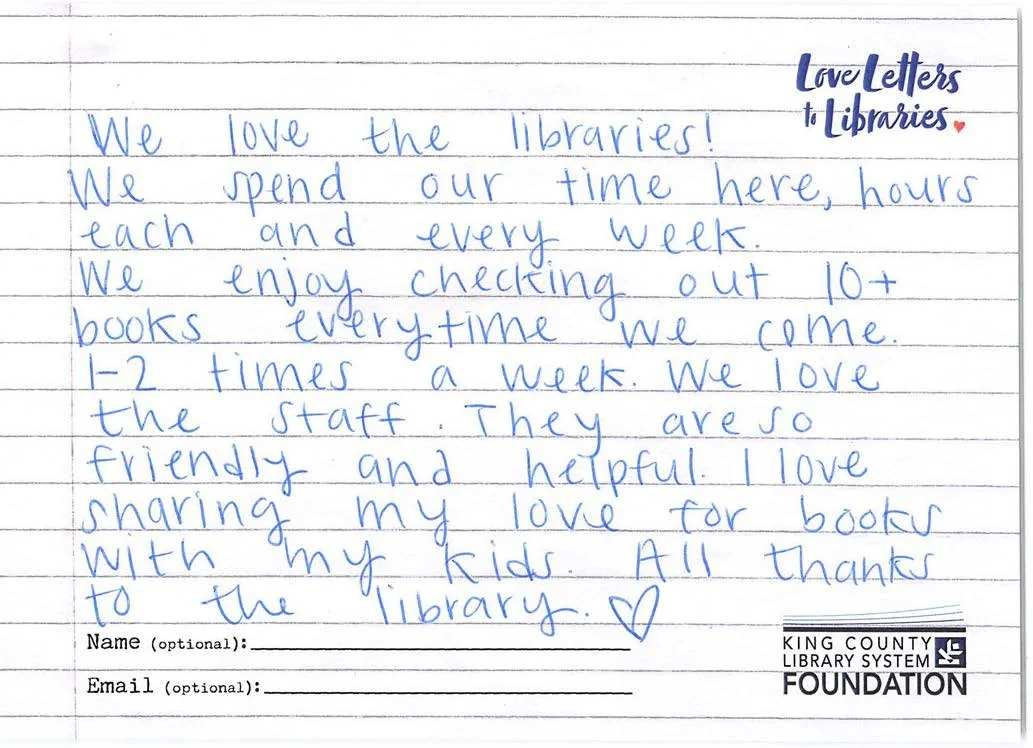 Love Letters
to Libraries
We love the libraries!
We spend our time here, hours
each and every week.
We enjoy checking out 10+
books everytime we come.
1-2 times a week. We love
the staff. They are so
friendly and helpful. I love
sharing my love for books
with my kids. All thanks
to the library. ♡
Name (optional):
Email (optional):
KING COUNTY
LIBRARY SYSTEM
FOUNDATION